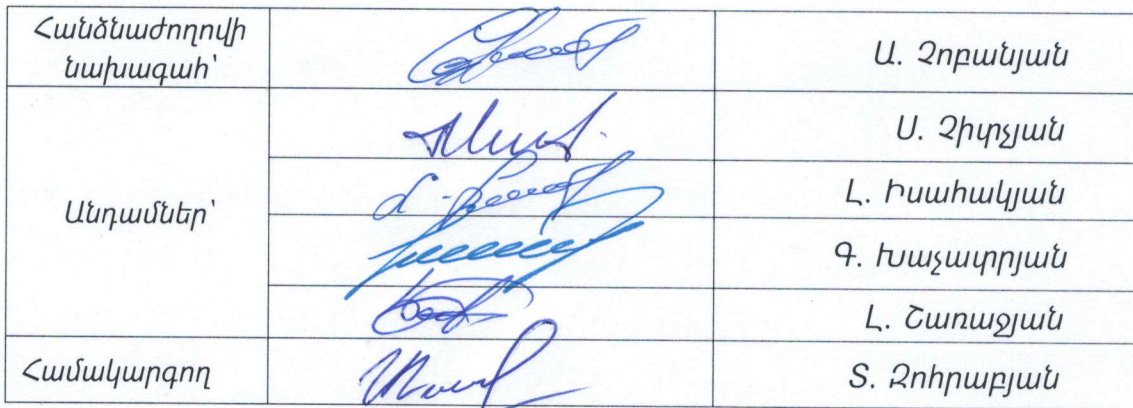 Հանձնաժողովի
նախագահ՝
Ա. Չոբանյան
Անդամներ՝
Ս. Չիտչյան
Լ. Իսահակյան
Գ. Խաչատրյան
Լ. Շառաջյան
Համակարգող
Տ. Զոհրաբյան